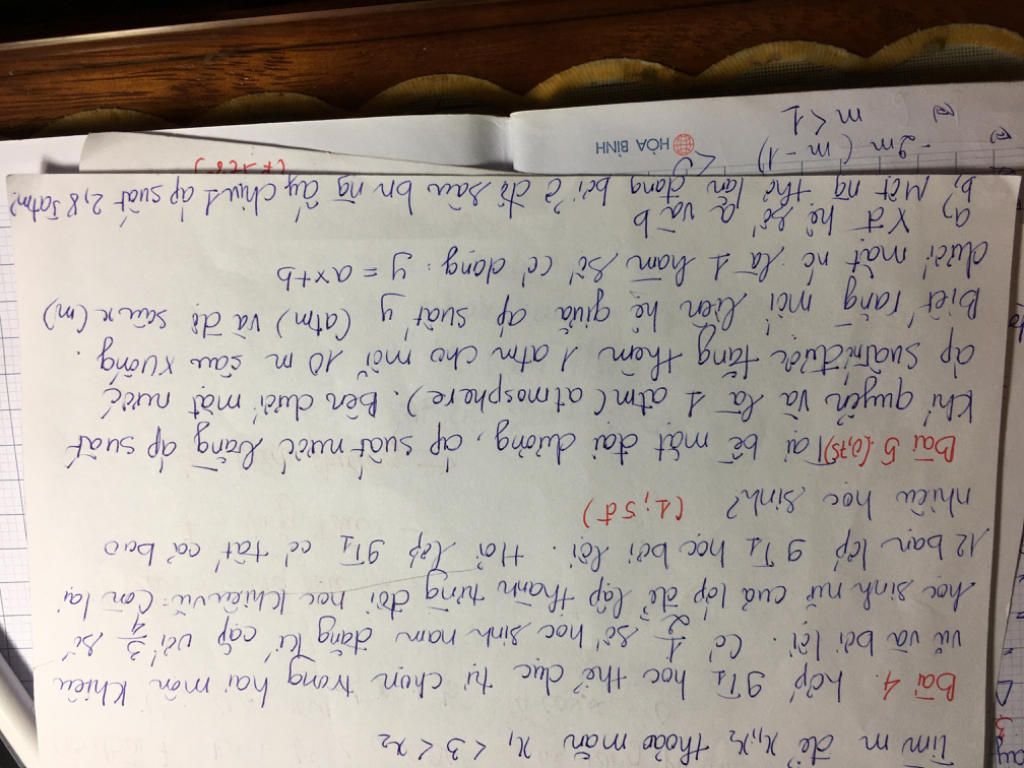 Tìm m để x₁,x₂ thỏa mãn x₁ < 3 < x₂
Bài 4. Lớp 9T₁ học thể dục tự chọn trong hai môn Khiêu
vũ và bơi lội. Có 1/2 số học sinh nam đăng kí cặp với 3/4 số
học sinh nữ của lớp để lập thành từng đôi học khiêu vũ. Còn lại
12 bạn lớp 9T₁ học bơi lội. Hỏi lớp 9T₁ có tất cả bao
nhiêu học sinh? (1,5đ)
Bài 5 (0,75) Tại bề mặt đại dương, áp suất nước bằng áp suất
khí quyển và là 1 atm (atmosphere). Bên dưới mặt nước
áp suất nước tăng thêm 1 atm cho mỗi 10 m sâu xuống.
Biết rằng mối liên hệ giữa áp suất y (atm) và độ sâu x (m)
dưới mặt nc là 1 hàm số có dạng: y = ax+b
a) Xđ hệ số a và b
b, Một ng thợ lặn đang bơi ở độ sâu bn ng ấy chịu 1 áp suất 2,85atm?
HÒA BÌNH
-2m (m-1) <0
m < 1